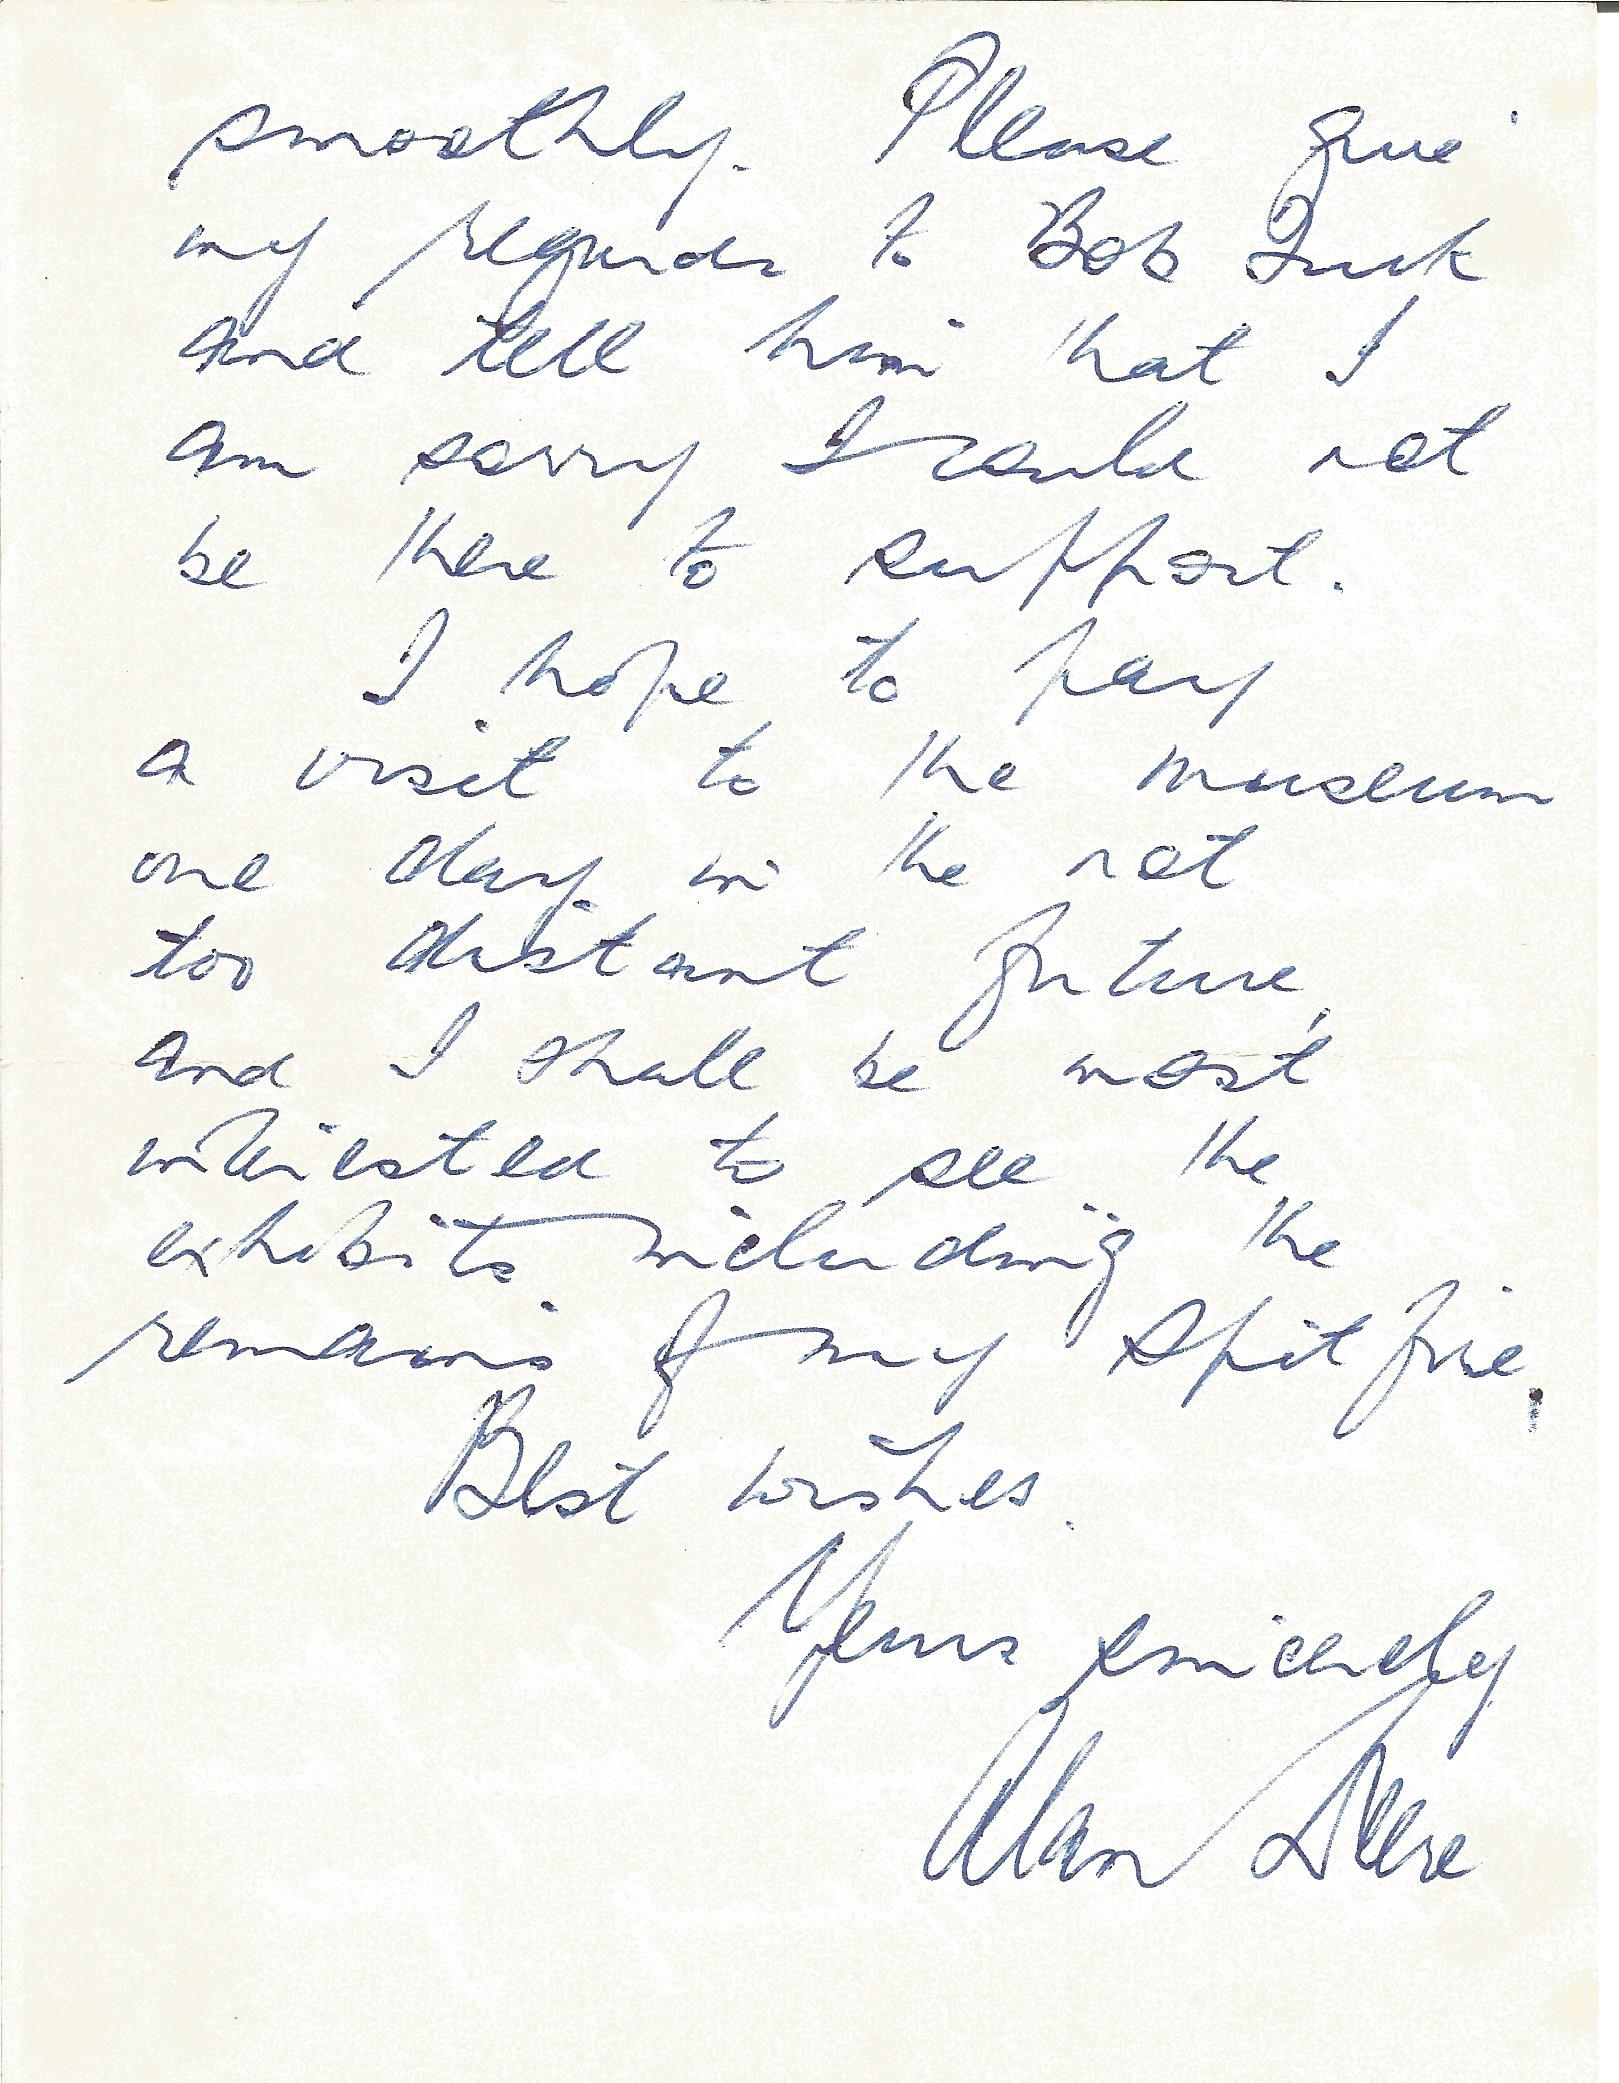 smoothly. Please give
my regards to Bob Tuck
and tell him that I
am sorry I could not
be there to support.
I hope to pay
a visit to the museum
one day in the not
too distant future,
and I shall be most
interested to see the
exhibits including the
remains of my Spitfire!
Best wishes.
Yours sincerely
Alan Deere